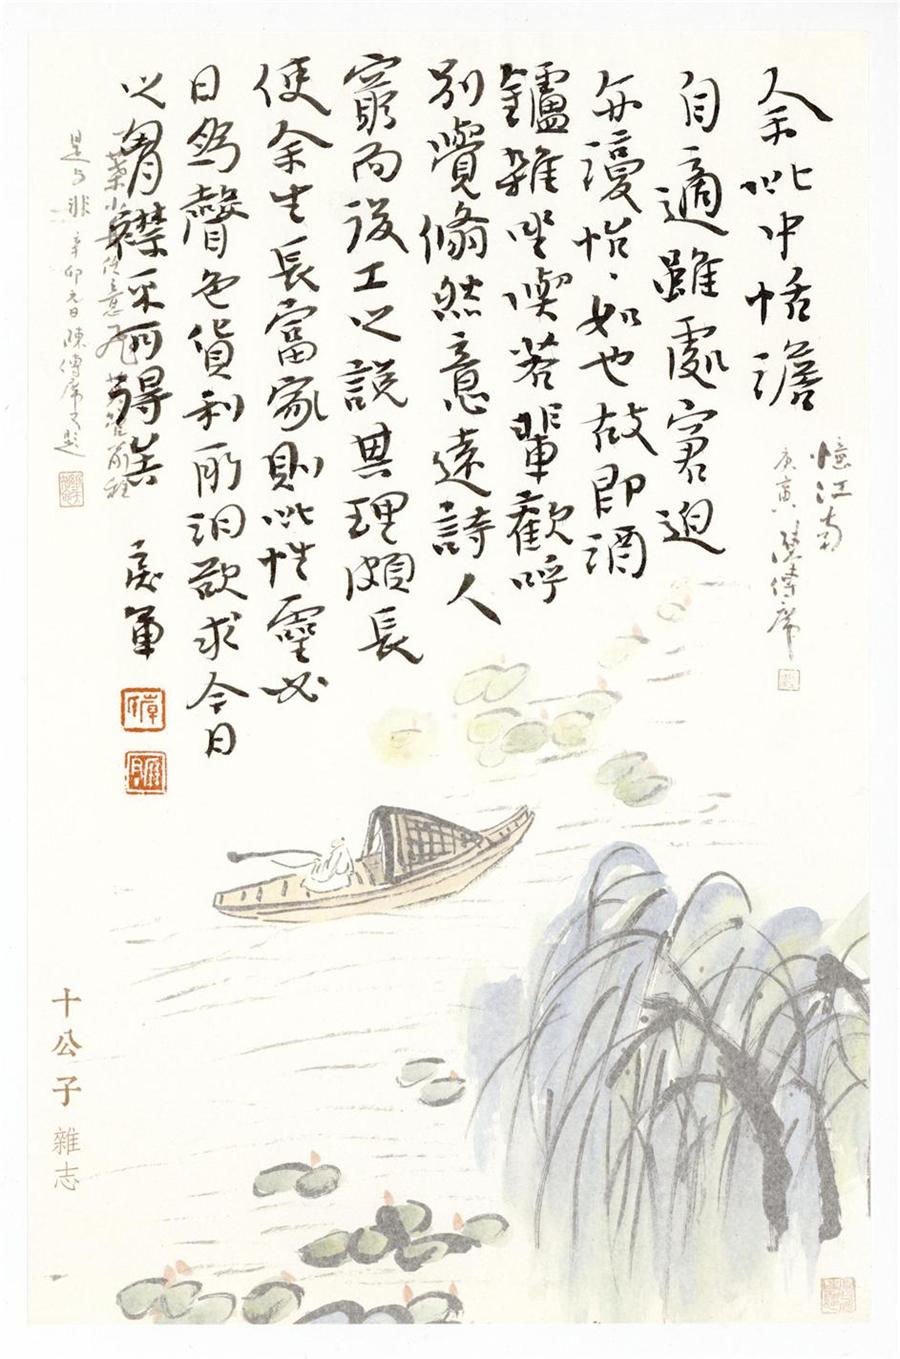 余此中恬澹
自適雖處窘迫
每謾怡、如也故即酒
鑪雜坐喫茗輩歡呼
別覺翛然意遠詩人
窮而後工之說其理頗長
使余生長富家則此性靈必
日為聲色貨利所汩欲求今日
之胷襟采可得
憶江南
庚寅 陳傳席
葉小
是與非 辛卯元日陳傳席又題
十公子
雜志